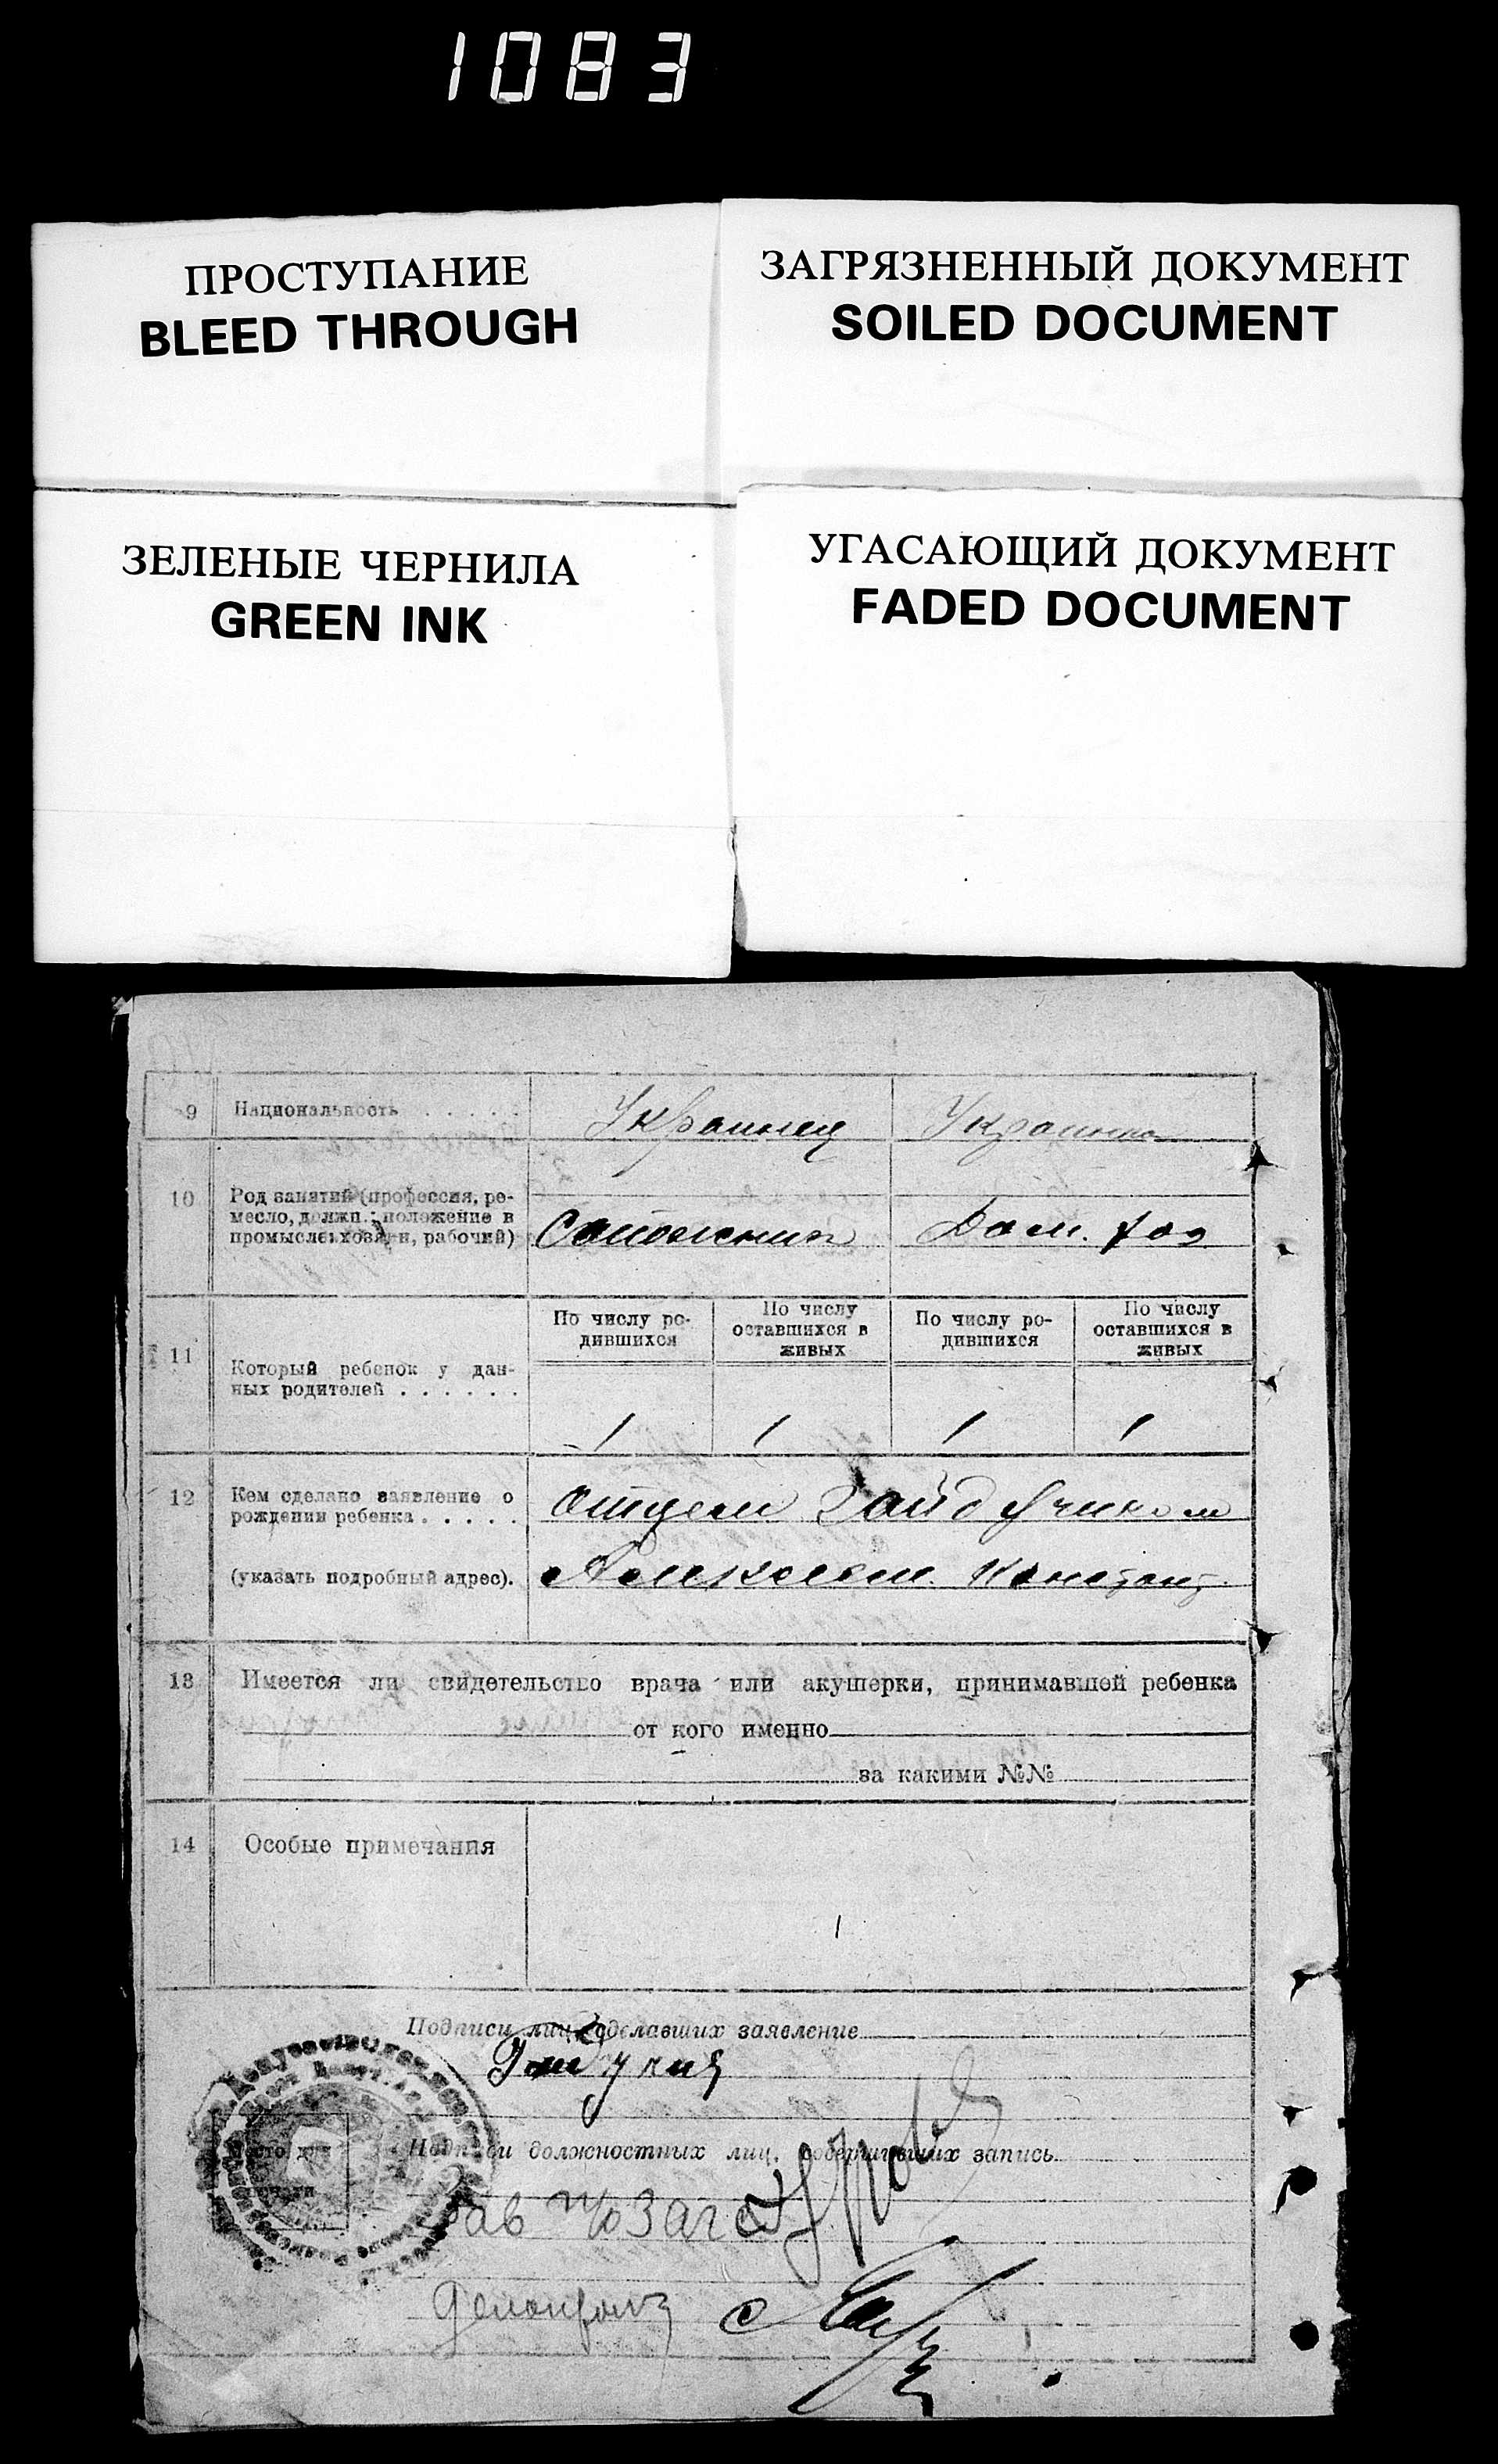 1083
ПРОСТУПАНИЕ
BLEED THROUGH
ЗАГРЯЗНЕННЫЙ ДОКУМЕНТ
SOILED DOCUMENT
ЗЕЛЕНЫЕ ЧЕРНИЛА
GREEN INK
УГАСАЮЩИЙ ДОКУМЕНТ
FADED DOCUMENT
9 Национальность . . . . . Украинец Украинка
10 Род занятий (профессия, ре-
месло, должн.; положение в
промысле: хозяин, рабочий) Сапожник Дом. хоз
11 Который ребенок у дан-
ных родителей . . . . . .
По числу ро-
дившихся
По числу
оставшихся в
живых
По числу ро-
дившихся
По числу
оставшихся в
живых
1 1 1 1
12 Кем сделано заявление о
рождении ребенка . . . . . Отцем Гайдучиком
(указать подробный адрес). Алексеем Констант.
13 Имеется ли свидетельство врача или акушерки, принимавшей ребенка
от кого именно
за какими №№
14 Особые примечания
Подписи лиц, сделавших заявление
Подписи должностных лиц, совершивших запись
Место для
печати
Зав п/о Загс
Делопроиз